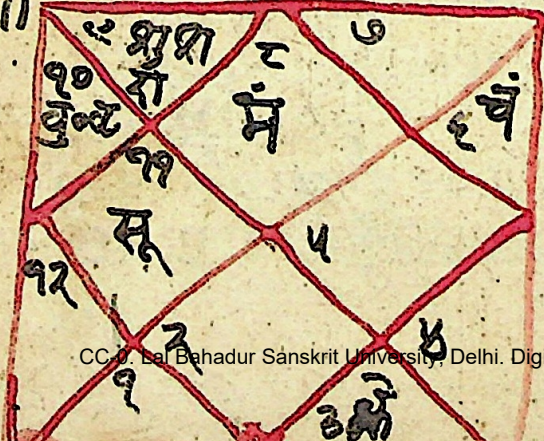 ॥
९ शु श
रा
८
मं
७
१०
६ चं
११
सू
५
१२
२
४
CC-0. Lal Bahadur Sanskrit University, Delhi. Dig
१
३